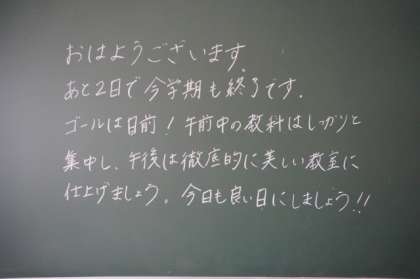 おはようございます。
あと2日で今学期も終了です。
ゴールは目前！午前中の教科はしっかりと
集中し、午後は徹底的に美しい教室に
仕上げましょう。今日も良い日にしましょう!!